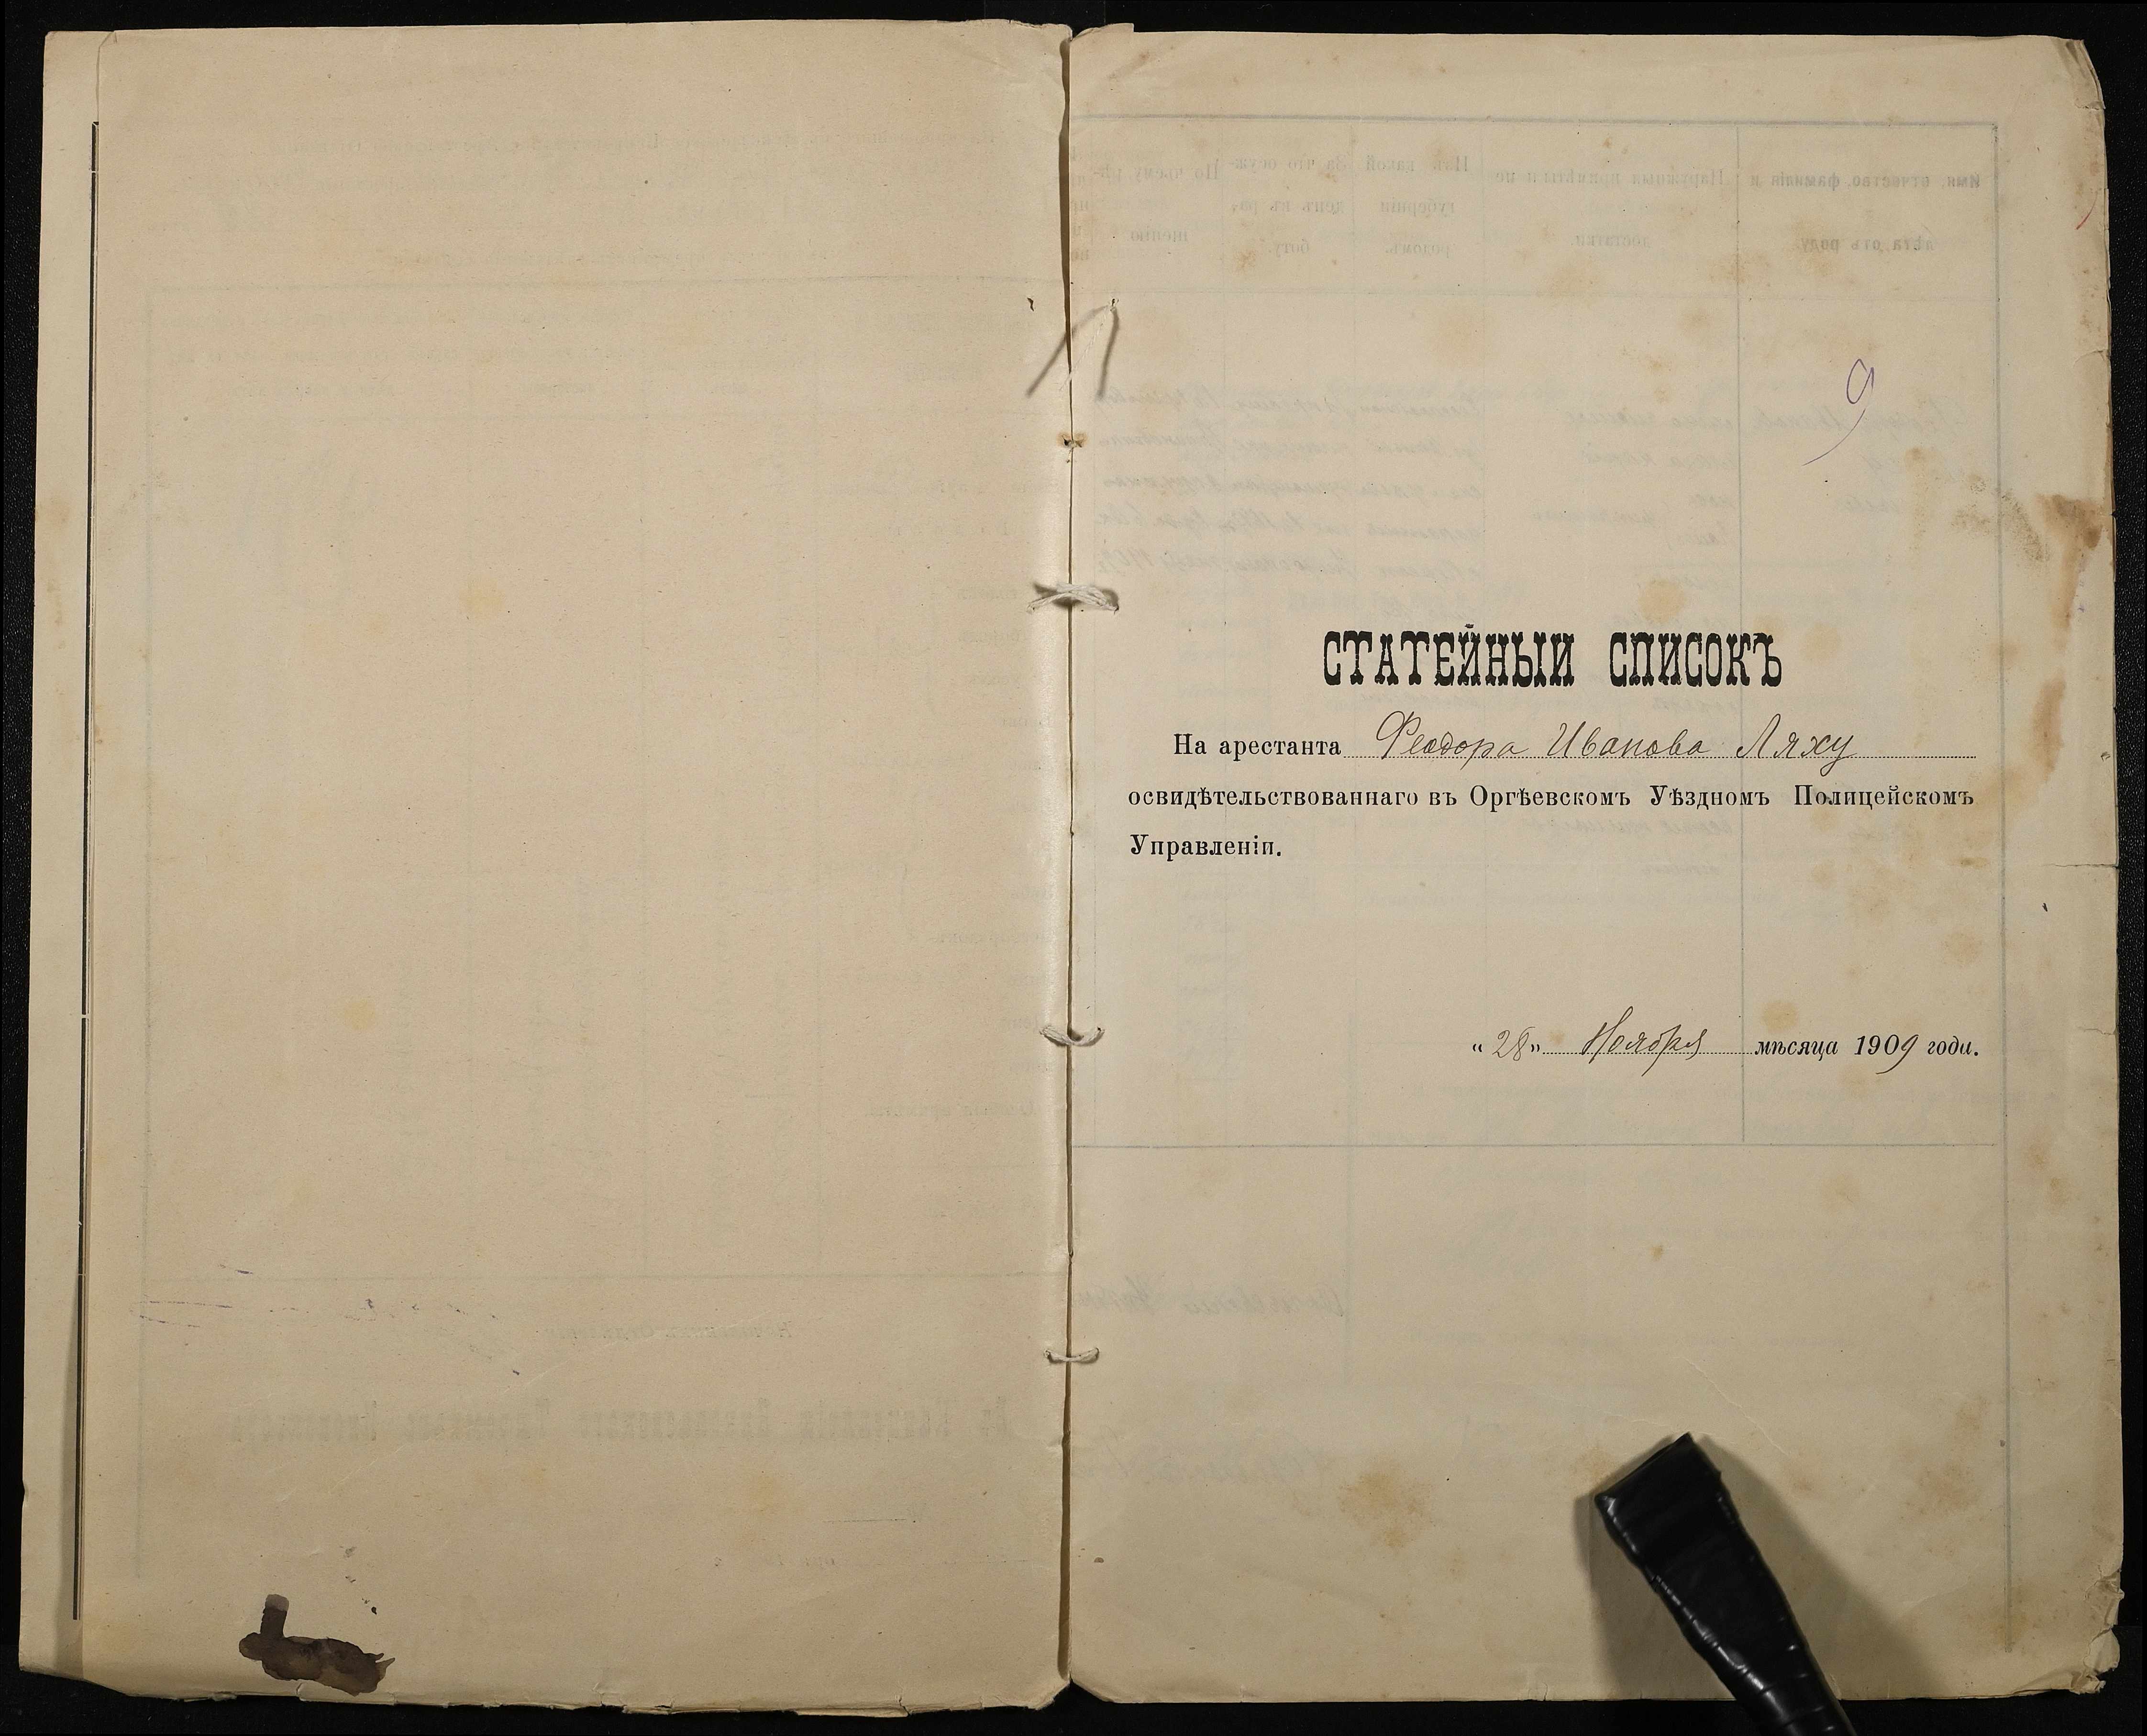 9
СТАТЕЙНЫЙ СПИСОКЪ
На арестанта Феодора Иванова Ляху
освидѣтельствованнаго въ Оргѣевскомъ Уѣздномъ Полицейскомъ
Управленіи.
«28» Ноября мѣсяца 1909 года.